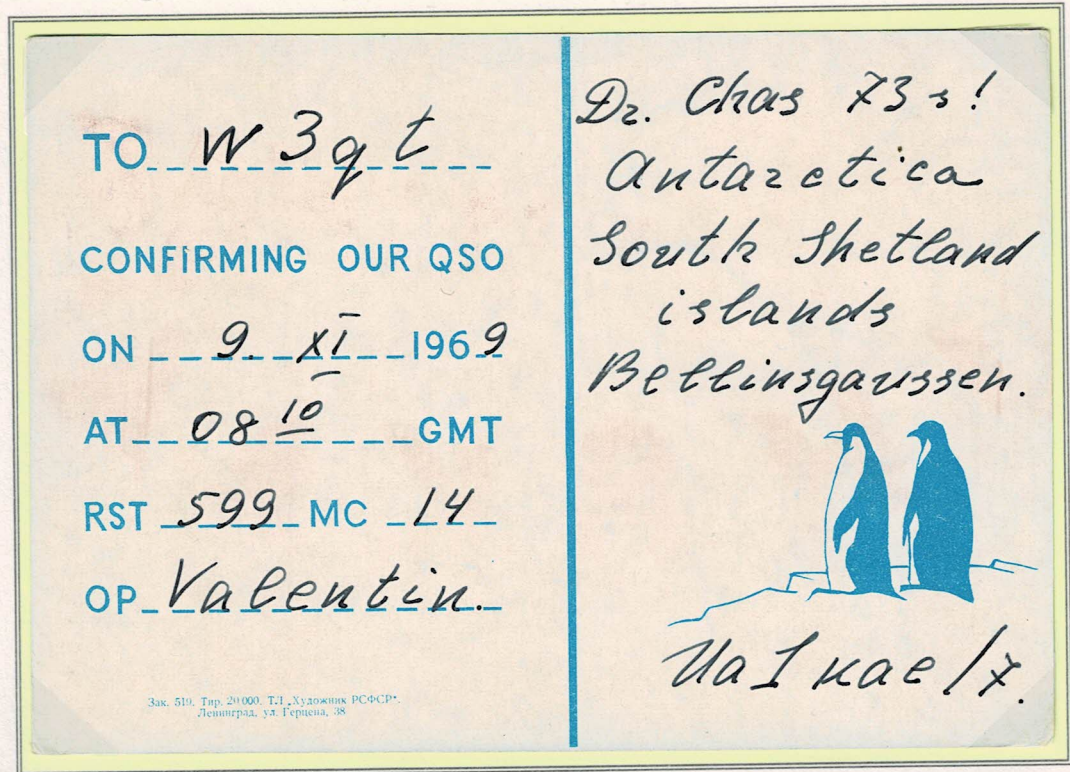 TO W3qt
CONFIRMING OUR QSO
ON 9. XI 1969
AT 08 10 GMT
RST 599 MC 14
OP Valentin.
Зак. 519. Тир. 20 000. ТЛ „Художник РСФСР“.
Ленинград, ул. Герцена, 38
Dr. Chas 73 s!
Antarctica
South Shetland
islands
Bellinsgaussen.
Ua1kae/7.